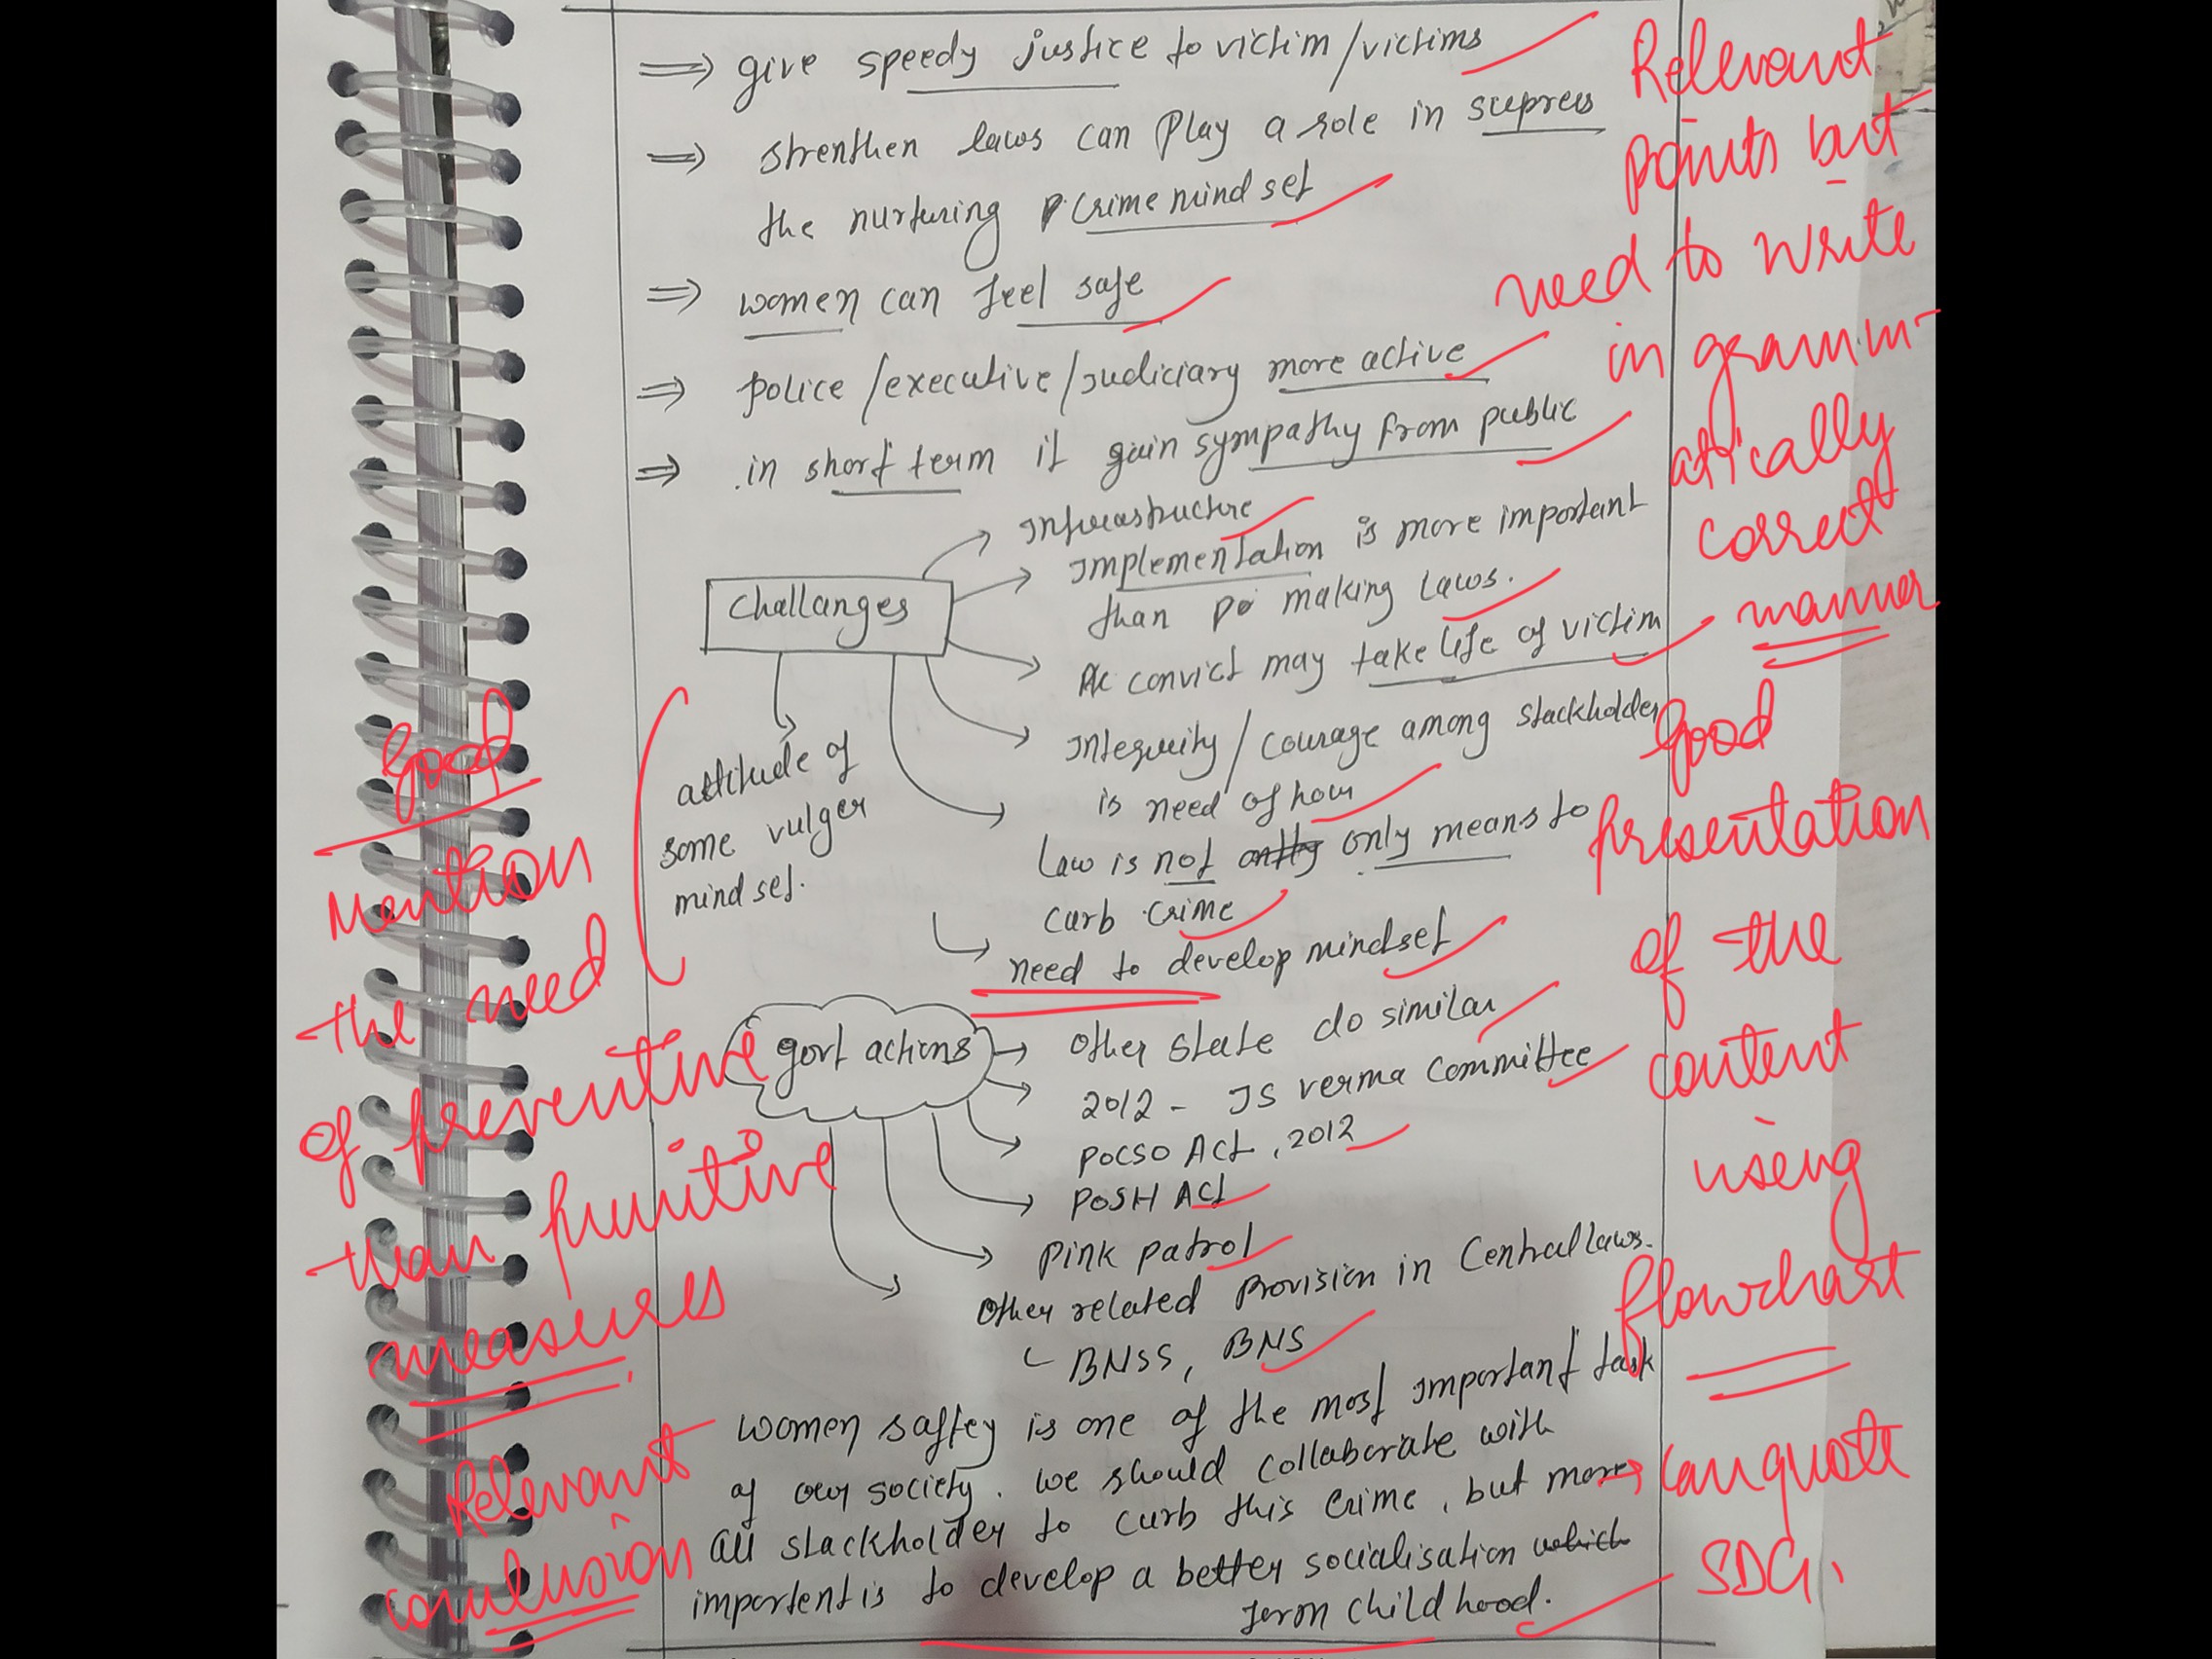 ⇒ give speedy justice to victim/victims
⇒ strenthen laws can play a role in supress
the nurturing crime mind set
⇒ women can feel safe
⇒ police/executive/judiciary more active
⇒ in short term it gain sympathy from public
Challanges
Infrastructure
Implementation is more important
than making laws.
convict may take life of victim
Integrity/courage among stackholder
is need of hour
law is not only means to
curb crime
need to develop mindset
attitude of
some vulger
mind set.
govt actions
other state do similar
2012 - JS verma committee
POCSO Act, 2012
POSH Act
Pink patrol
other related provision in Central laws.
BNSS, BNS
women saftey is one of the most important task
of our society. we should collaborate with
all stackholder to curb this crime, but more
importent is to develop a better socialisation which
from childhood.
Relevant
points but
need to write
in gramm-
atically
correct
manner
Good
presentation
of the
content
using
flowchart
→ can quote
SDG.
Good
Mention
the need
of preventive
than punitive
measures
Relevant
conclusion